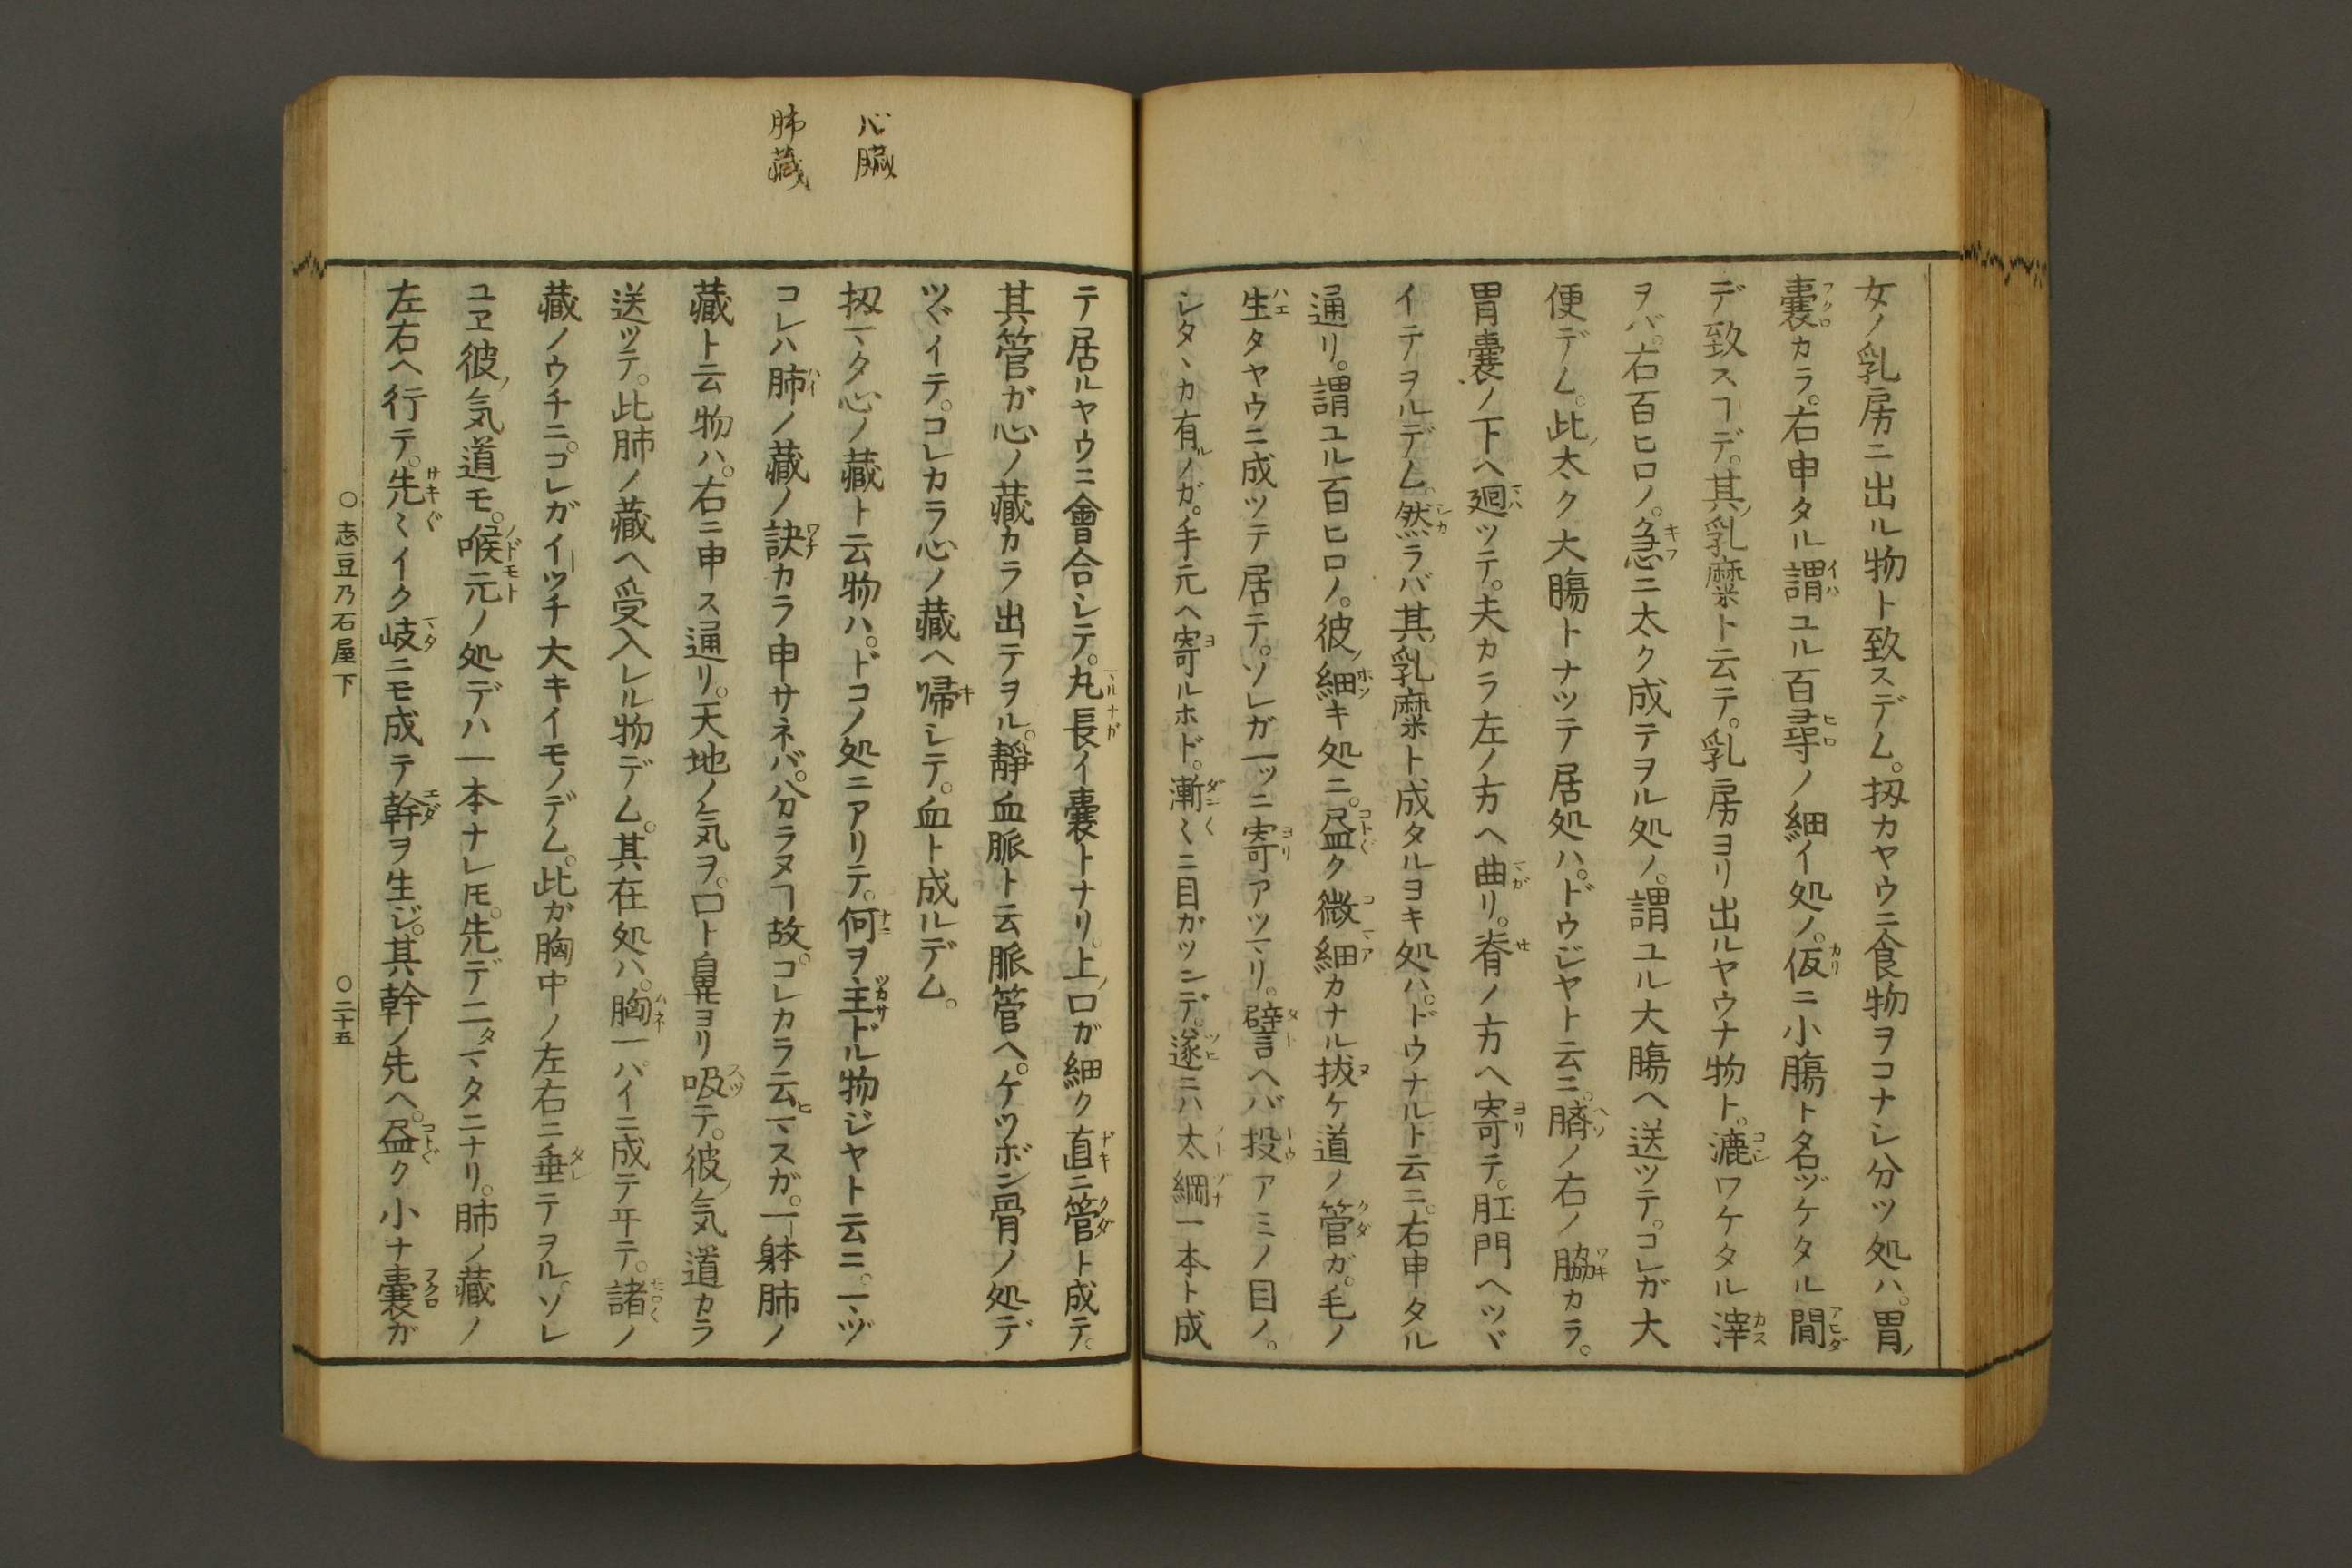 女ノ乳房ニ出ル物ト致スデム。扨カヤウニ食物ヲコナシ分ツ処ハ。胃ノ
囊カラ。右申タル謂ユル百尋ノ細イ処ノ。仮ニ小膓ト名ヅケタル間
デ致スヿデ。其ノ乳糜ト云テ。乳房ヨリ出ルヤウナ物ト。漉ワケタル滓
ヲバ。右百ヒロノ。急ニ太ク成テヲル処ノ。謂ユル大膓ヘ送ツテ。コレガ大
便デム。此ノ太ク大膓トナツテ居処ハ。ドウジヤト云ニ。臍ノ右ノ脇カラ。
胃囊ノ下ヘ廻ツテ。夫カラ左ノ方ヘ曲リ。脊ノ方ヘ寄テ。肛門ヘツヾ
イテヲルデム。然ラバ其ノ乳糜ト成タルヨキ処ハ。ドウナルト云ニ。右申タル
通リ。謂ユル百ヒロノ。彼ノ細キ処ニ。尽ク微細カナル抜ケ道ノ管ガ。毛ノ
生タヤウニ成ツテ居テ。ソレガ一ツニ寄アツマリ。譬ヘバ投アミノ目ノ。
シタヽカ有ルノガ。手元ヘ寄ルホド。漸〻ニ目ガツンデ。遂ニハ太綱一本ト成
テ居ルヤウニ會合シテ。丸長イ囊トナリ。上ノ口ガ細ク直ニ管ト成テ。
其管ガ心ノ藏カラ出テヲル。靜血脈ト云脈管ヘ。ケツボン骨ノ処デ
ツヾイテ。コレカラ心ノ藏ヘ帰シテ。血ト成ルデム。
扨マタ心ノ藏ト云物ハ。ドコノ処ニアリテ。何ヲ主ドル物ジヤト云ニ。マヅ
コレハ肺ノ藏ノ訣カラ申サネバ。分ラヌヿ故。コレカラ云マスガ。一躰肺ノ
藏ト云物ハ。右ニ申ス通リ。天地ノ気ヲ。口ト鼻ヨリ吸テ。彼ノ気道カラ
送ツテ。此肺ノ藏ヘ受入レル物デム。其在処ハ。胸一パイニ成テ平テ。諸ノ
藏ノウチニ。コレガイツチ大キイモノデム。此ガ胸中ノ左右ニ垂テヲル。ソレ
ユヱ彼ノ気道モ。喉元ノ処デハ一本ナレ𪜈。先デ二タマタニナリ。肺ノ藏ノ
左右ヘ行テ。先〻イク岐ニモ成テ幹ヲ生ジ。其幹ノ先ヘ。尽ク小ナ囊ガ
心臓
肺藏
○志豆乃石屋下
○二十五